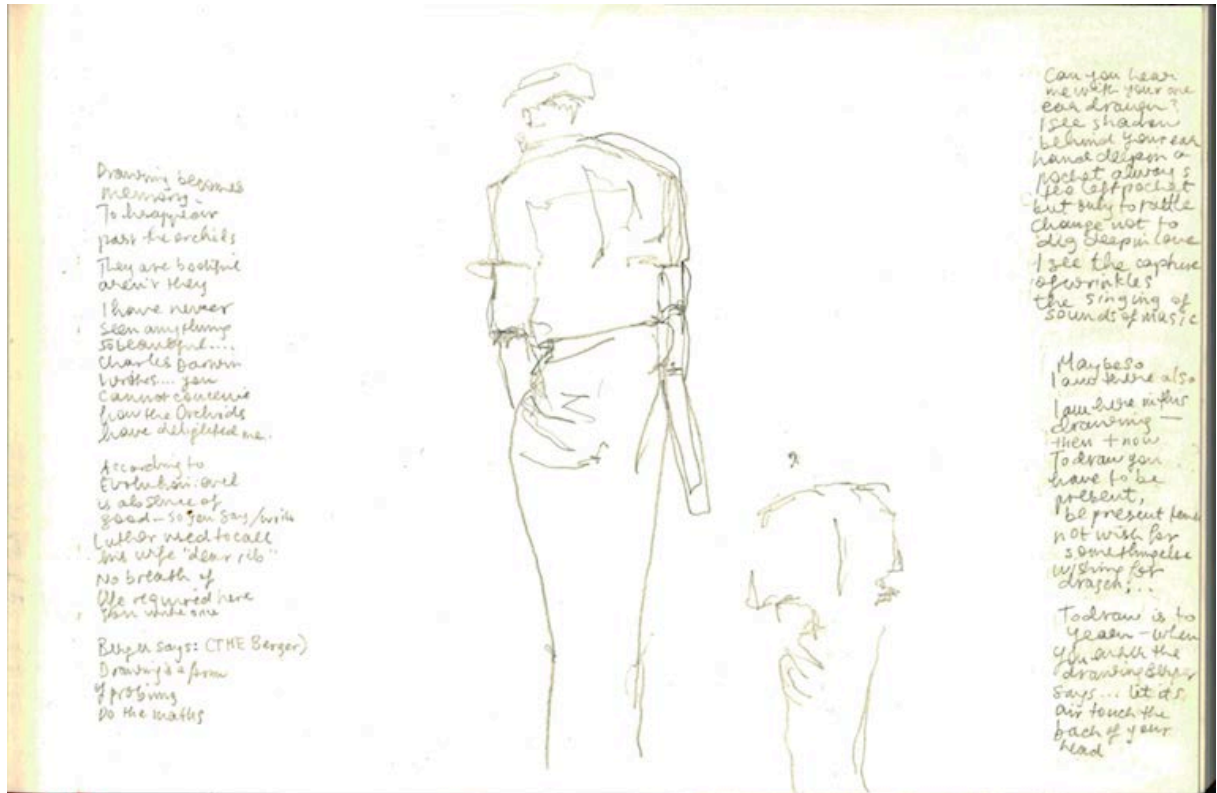 Drawing becomes
memory.
To
past the orchids
They are
aren't they
I have never
seen anything
so beautiful....
Charles Darwin
writes... you
cannot conceive
how the Orchids
have delighted me.
According to
Evolution evil
is absence of
good – so you say/write
Luther used to call
his wife "dear rib"
No breath of
life required here
write one
Berger says: (THE Berger)
Drawing is a form
of probing
Do the maths
Can you hear
me with your one
ear drawn?
I see shadow
behind your ear
hand deep in a
pocket always
left pocket
but only to rattle
change not to
dig deep in love
I see the capture
of wrinkles
the singing of
sounds of music
Maybe so
I am there also
I am here in this
drawing —
then + now
To draw you
have to be
present,
be present
not wish for
something else
wishing for
To draw is to
yearn – when
you enter the
drawing Berger
says... let its
air touch the
back of your
head